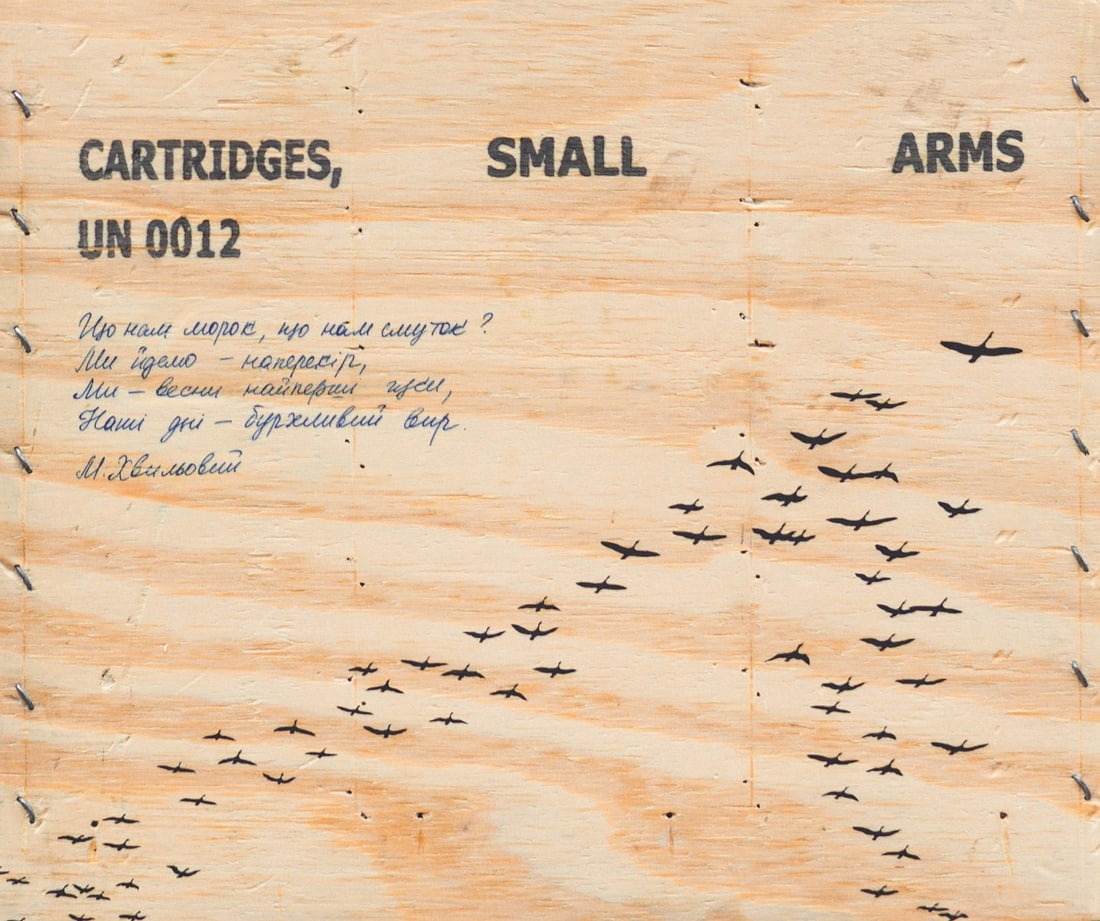 CARTRIDGES, SMALL ARMS
UN 0012
Що нам морок, що нам смуток?
Ми йдемо – наперекір,
Ми – весни найперші гуки,
Наші дні – бурхливий вир.
М. Хвильовий